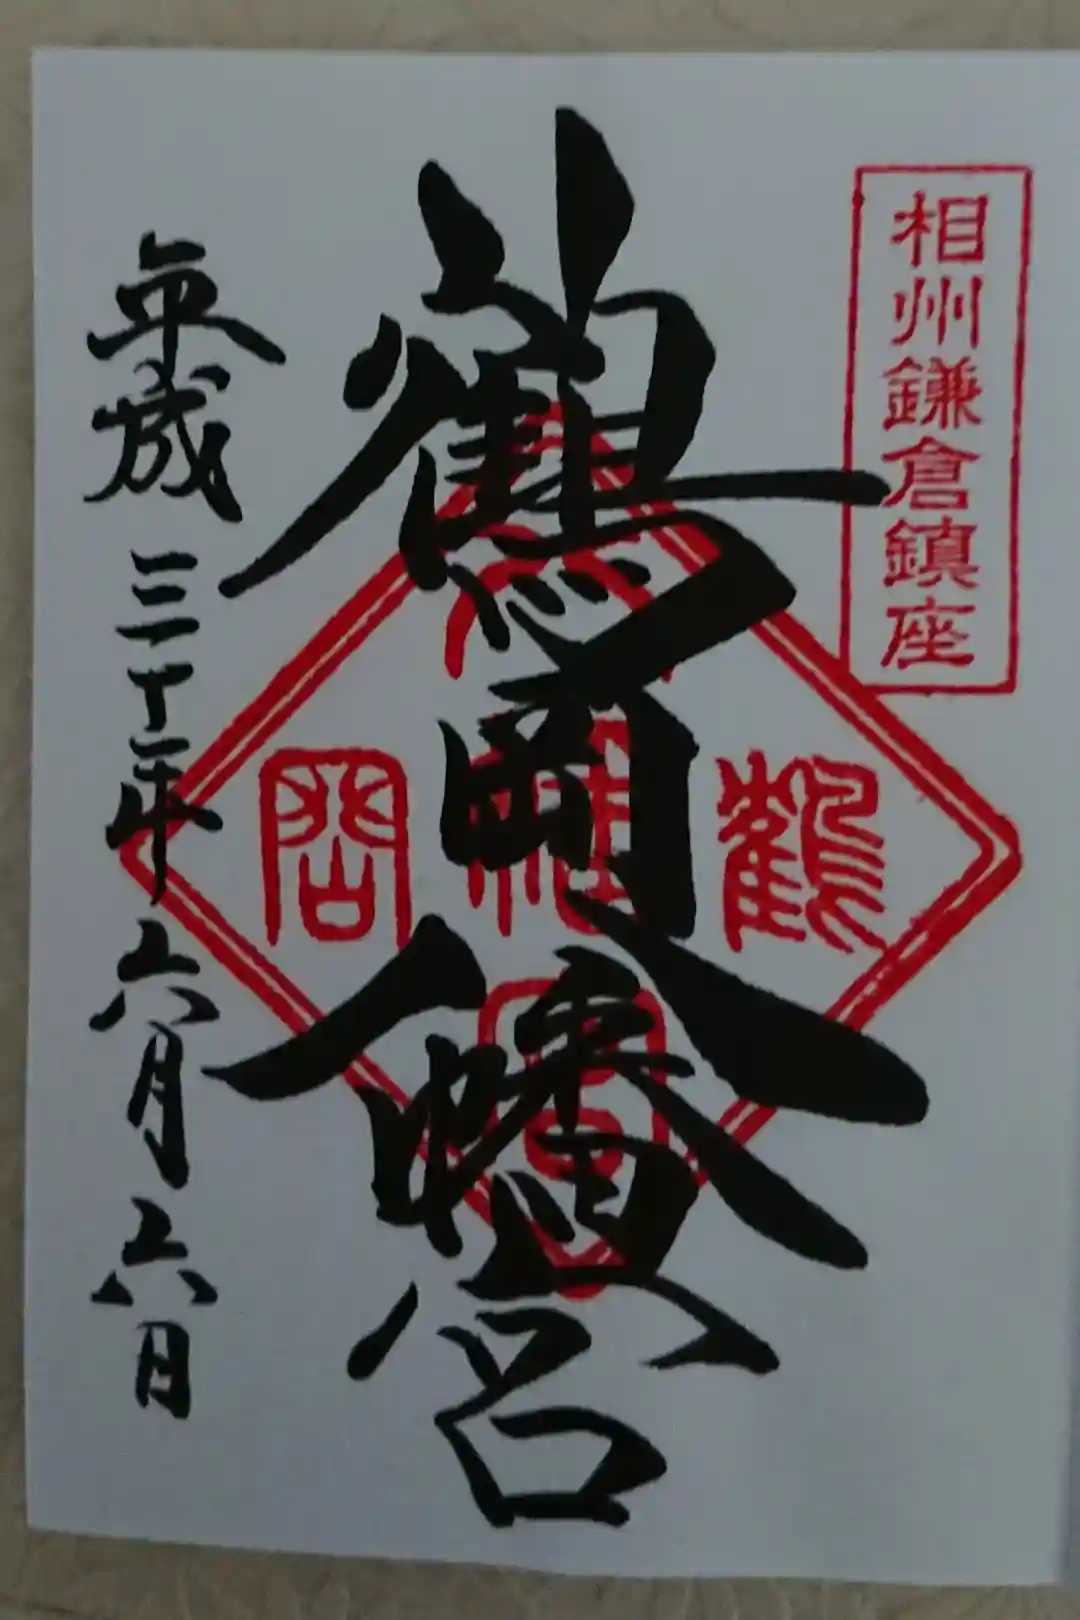 相州鎌倉鎮座
鶴岡八幡宮
平成三十年六月六日
鶴
岡